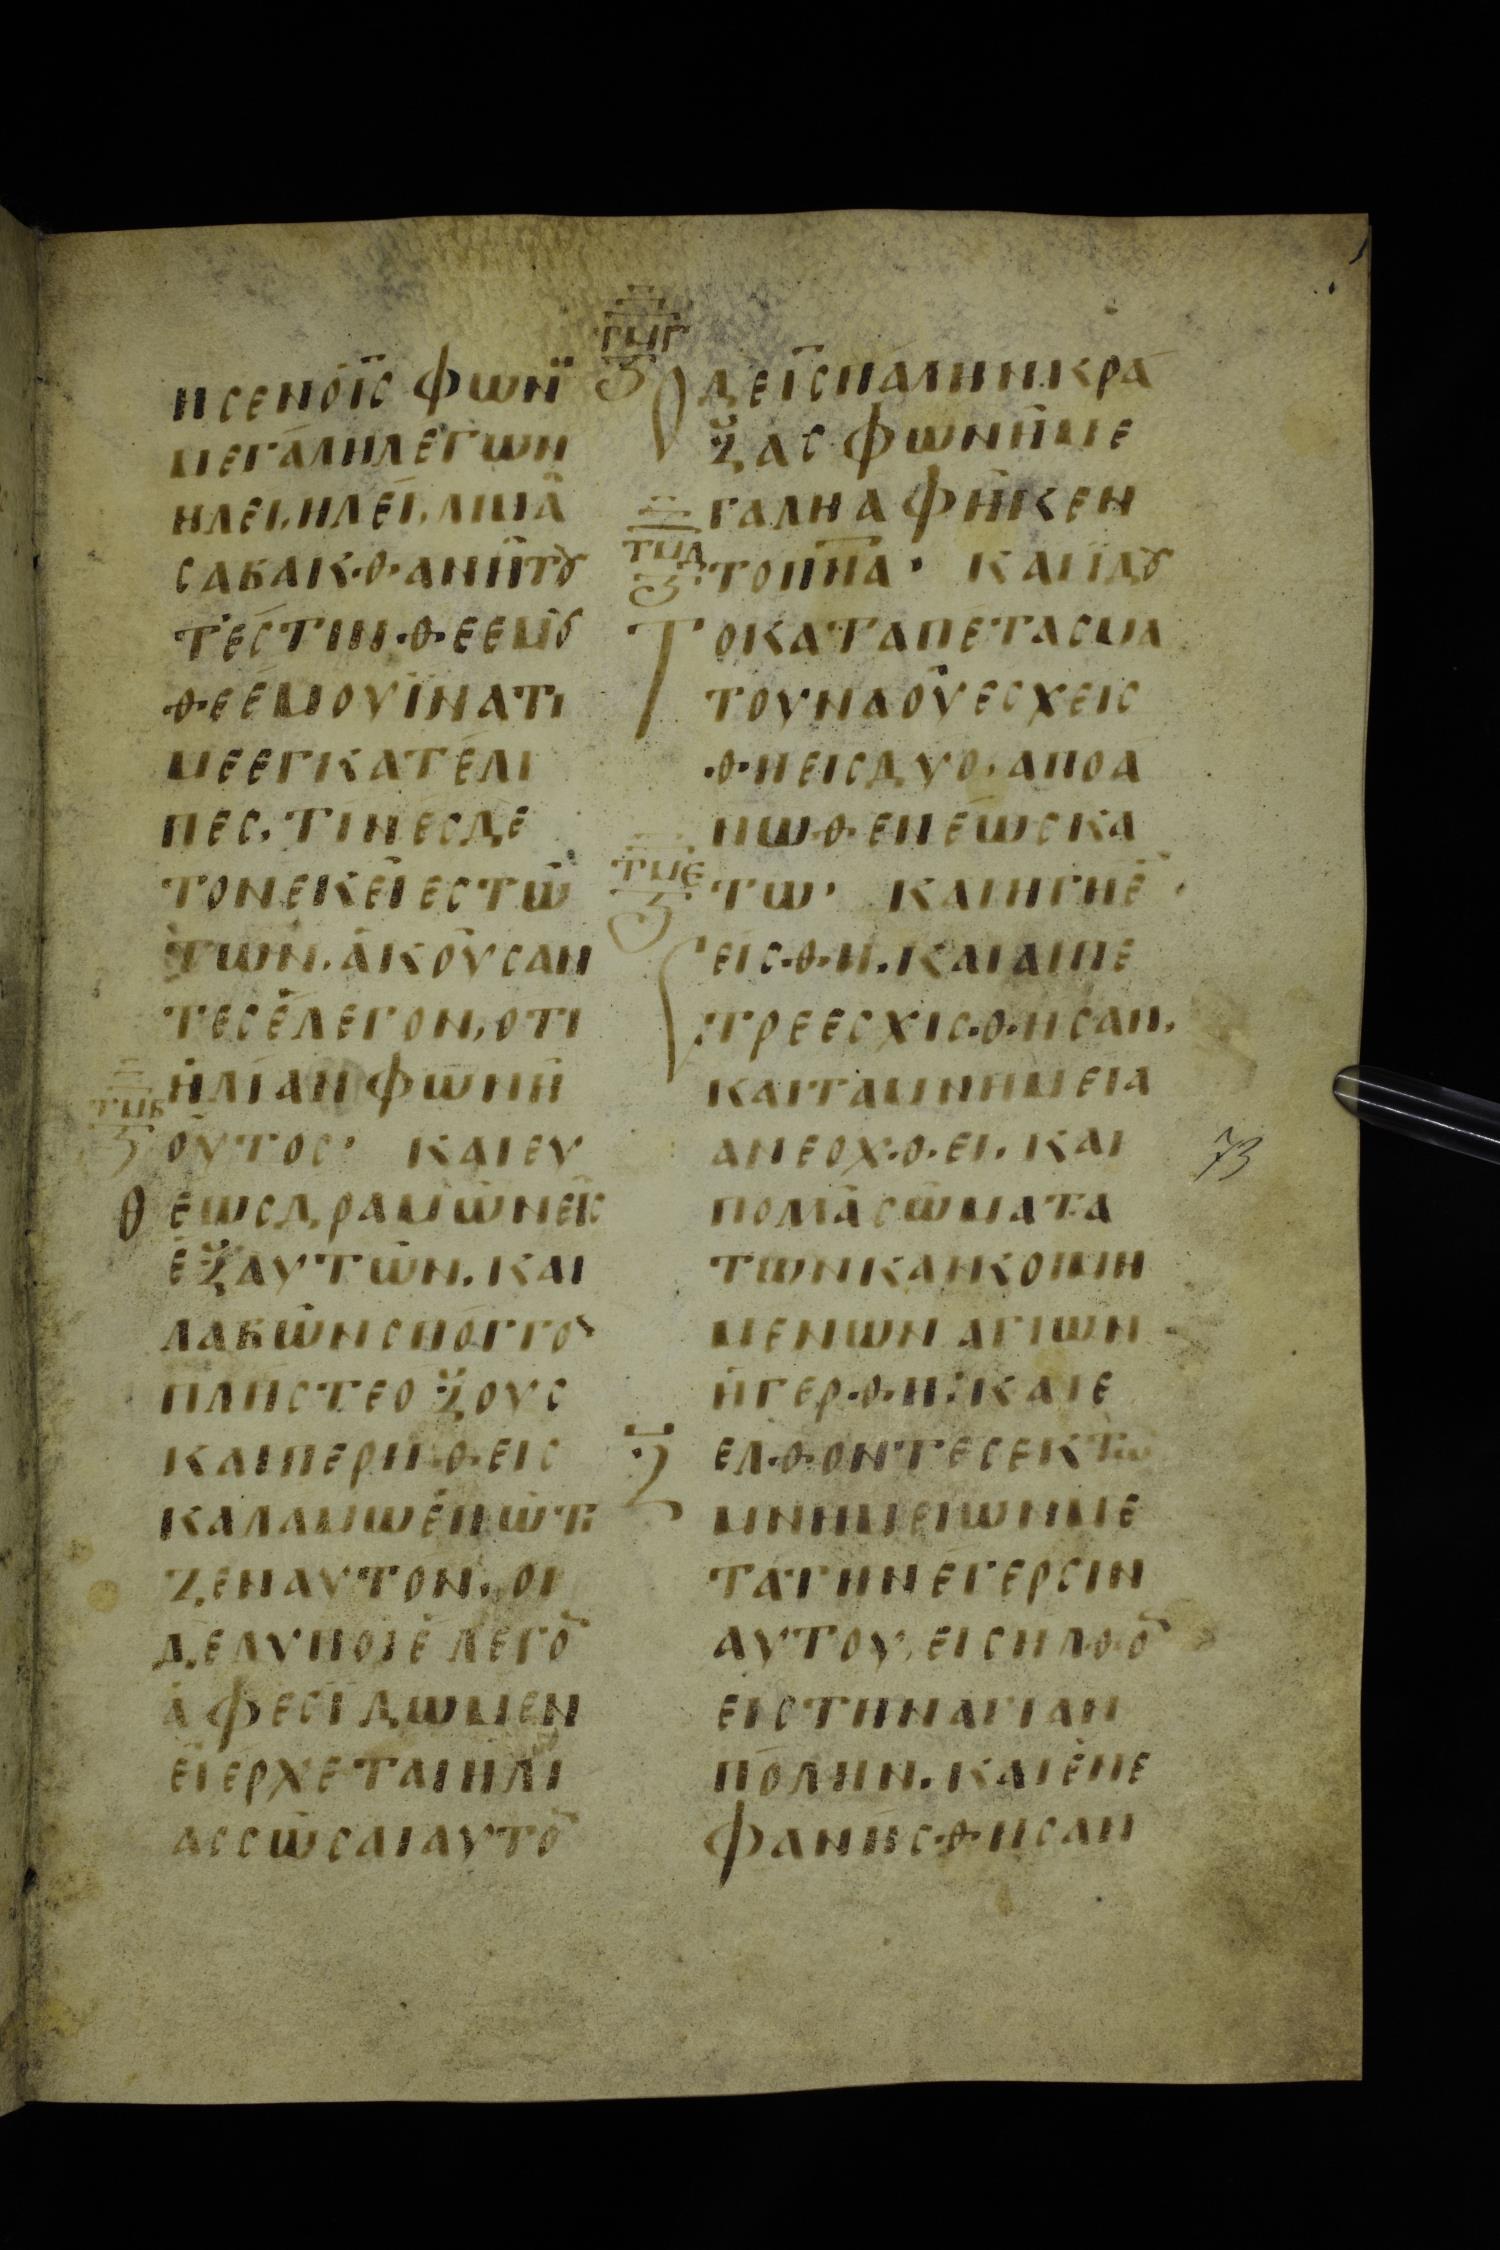 ΗΣΕΝΟΙ̅Σ ΦΩΝΗ
ΜΕΓΑΛΗΛΕΓΩΝ
ΗΛΕΙ, ΗΛΕΙ, ΛΙΜΑ
ΣΑΒΑΚ·Θ·ΑΝΗΙΤȢ
ΤΕΣΤΙΝ·Θ·ΕΕΜȢ
·Θ·ΕΕΜΟΥΪΝΑΤΙ
ΜΕΕΓΚΑΤΕΛΙ
ΠΕΣ, ΤΙΝΕΣΔΕ
ΤΟΝΕΚΕΙΕΣΤΩ
ΤΩΝ. ΑΚΟΥΣΑΝ
ΤΕΣΕΛΕΓΟΝ, ΟΤΙ
ΗΛΙΑΝΦΩΝΗ
ΤΜΒ
ΟΥΤΟΣ· ΚΑΙΕΥ
ΘΕΩΣΔΡΑΜΩΝΕΙΣ
ΕΞΑΥΤΩΝ. ΚΑΙ
ΛΑΒΩΝΣΠΟΓΓΟ
ΠΛΗΣΤΕΟΞΟΥΣ
ΚΑΙΠΕΡΗ·Θ·ΕΙΣ
ΚΑΛΑΜΩΕΠΩΤΙ
ΖΕΝΑΥΤΟΝ. ΟΙ
ΔΕΛΥΠΟΙΕΛΕΓΟ̅
ΑΦΕΣΙΔΩΜΕΝ
ΕΙΕΡΧΕΤΑΙΗΛΙ
ΑΣΣΩΣΑΙΑΥΤΟ̅
ΤΜΓ
ΟΔΕΙ̅ΣΠΑΛΗΝΚΡΑ
ΞΑΣΦΩΝΗΜΕ
ΓΑΛΗΑΦΗΚΕΝ
ΤΜΔ
ΤΟΠ̅Ν̅Α̅· ΚΑΙΪΔȢ
ΤΟΚΑΤΑΠΕΤΑΣΜΑ
ΤΟΥΝΑΟΥΕΣΧΕΙΣ
·Θ·ΗΕΙΣΔΥΟ, ΑΠΟΑ
ΝΩ·Θ·ΕΝΕΩΣΚΑ
ΤΜΕ
ΤΩ· ΚΑΙΗΓΗΕ
ΣΕΙΣ·Θ·Η. ΚΑΙΑΙΠΕ
ΤΡΕΕΣΧΙΣ·Θ·ΗΣΑΝ,
ΚΑΙΤΑΜΝΗΜΕΙΑ
ΑΝΕΟΧ·Θ·ΕΙ. ΚΑΙ
73
ΠΟΛΛΑΣΩΜΑΤΑ
ΤΩΝΚΑΙΚΟΙΜΗ
ΜΕΝΩΝΑΓΙΩΝ
ΗΓΕΡ·Θ·Η: ΚΑΙΕ
ΞΕΛ·Θ·ΟΝΤΕΣΕΚΤΩ
ΜΝΗΜΕΙΩΝΜΕ
ΤΑΤΗΝΕΓΕΡΣΙΝ
ΑΥΤΟΥ, ΕΙΣΗΛ·Θ·Ο̅
ΕΙΣΤΗΝΑΓΙΑΝ
ΠΟΛΗΝ. ΚΑΙΕΝΕ
ΦΑΝΗΣ·Θ·ΗΣΑΝ